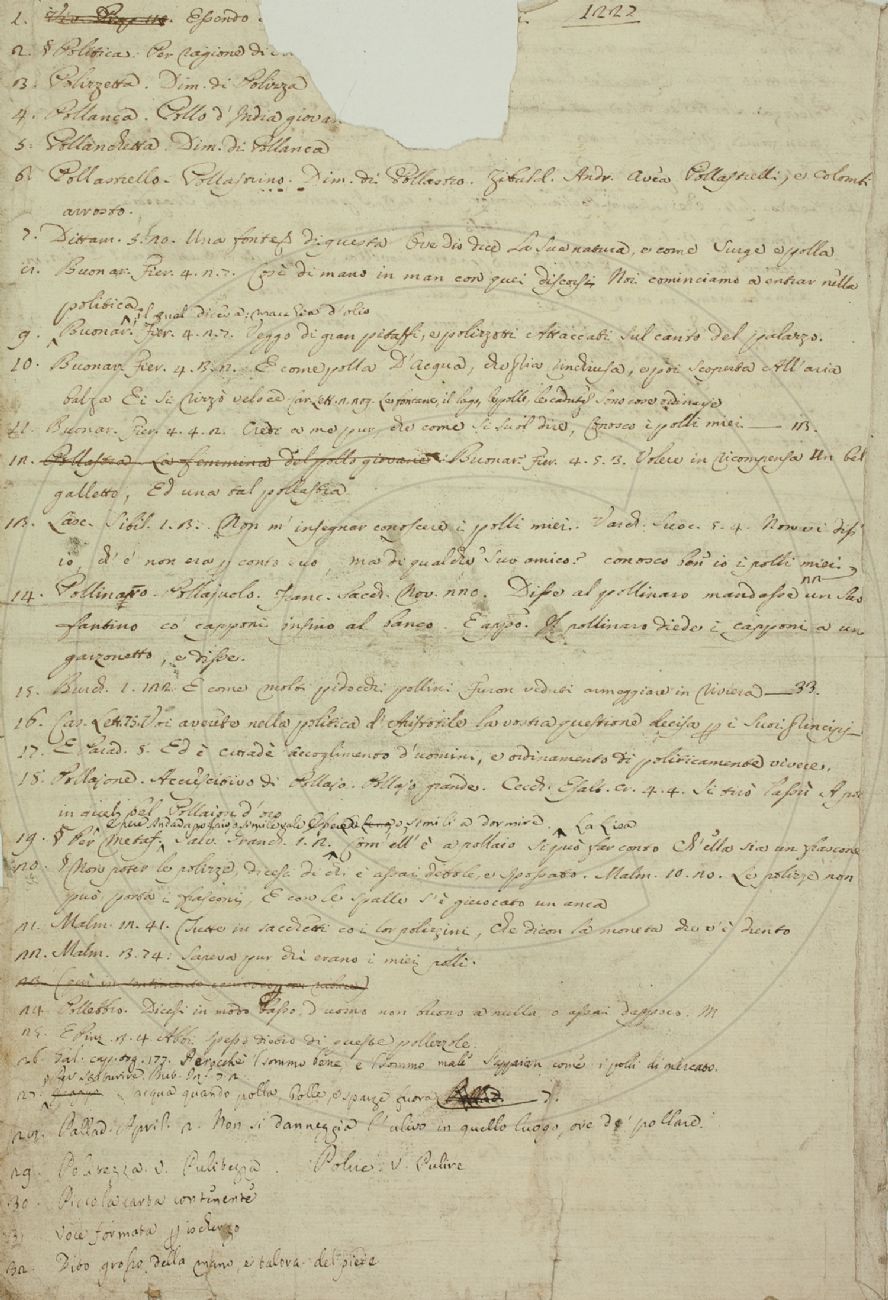 1222
1. Essendo
2. § Politica. Per ragione di
3. Polizzetta. Dim. di Polizza
4. Pollanca. Pollo d'India giova
5. Pollanchetta. Dim. di Pollanca
6. Pollastriello. Pollastrino. Dim. di Pollastro. Zibald. Andr. Avea Pollastrielli, e colombi
arrosto.
7. Dittam. 5. 20. Una fonte è di questa Ove dio dice La sua natura, e come surge e polla
Buonar. Fier. 4. 2. 7. Così di mano in man con quei discorsi, Noi cominciamo a entrar nella
politica
il qual diceva: macchia d'olio
9. Buonar. Fier. 4. 2. 7. Veggo di gran pitaffi, e polizzotti Attaccati sul canto del palazzo.
10. Buonar. Fier. 4. 3. 2. E come polla D'acqua, che stia rinchiusa, e poi scoperta All'aria
balza Ei si rizzò veloce Car. Lett. le fontane, il lago, le polle, le cadute sono cose ordinarie
11. Buonar. Fier. 4. 4. 2. Credi a me pur, che come si suol dire, Conosco i polli miei — 13.
12. Pollastra. La femmina del pollo giovane Buonar. Fier. 4. 5. 3. Volere in ricompensa Un bel
galletto, Ed una tal pollastra
13. Lasc. Sibil. 1. 3. Non m'insegnar conoscere i polli miei. Varch. Suoc. 5. 4. Non vi diss'
io, ch'e' non era conto suo, ma di qualche suo amico? conosco ben io i polli miei. 22
14. Pollinaro. Pollajuolo. Franc. Sacch. Nov. 220. Disse al pollinaro mandasse un suo
fantino co' capponi insino al banco. E appo. Il pollinaro diede i capponi a un
garzonetto, e disse.
15. Burch. 1. 122. E come molti pidocchi pollini Furon veduti armeggiare in Riviera — 33.
16. Cas. Lett. 75. Voi avevate nella politica d'Aristotile la vostra questione decisa per i suoi principj
17. 5. Ed è cittade accoglimento d'uomini, e ordinamento di politicamente vivere.
18. Pollajone. Accrescitivo di Pollajo. Pollajo grande. Cecch. Esalt. cr. 4. 4. Si tirò lassù A po
in quel bel Pollaion d'oro
simili a dormire. La Lisa
19. § Per Metaf. Salv. Granch. 1. 2. Com'ell'è a pollaio Si può far conto Ch'ella sia un fiascone
20. § Non poter le polizze, dicesi di chi è assai debole, e spossato. Malm. 10. 20. Le polizze non
può, porta i fiasconi, E con le spalle s'è giuocato un'anca
21. Malm. 12. 41. Tutte in sacchetti co i lor polizzini, Che dicon la moneta che v'è drento
22. Malm. 3. 74. Sapeva pur chi erano i miei polli.
23.
24. Pollebbro. Dicesi in modo basso, d'uomo non buono a nulla, o assai dappoco. M
25. spesso dietro di queste pollezzole.
26. Gal. 177. Perocchè i sommo bene, e i sommo male s'appaion come i polli di mercato.
27. acqua quando polla, bolle, e sparge fuora 7.
28. Pallad. April. 2. Non si danneggia l'ulivo in quello luogo, ove de' pollare.
29. Politezza. V. Pulitezza. Polire. V. Pulire
30. Piccola carta contenente
31. Voce formata per ischerzo
32. Dito grosso della mano, e talora del piede